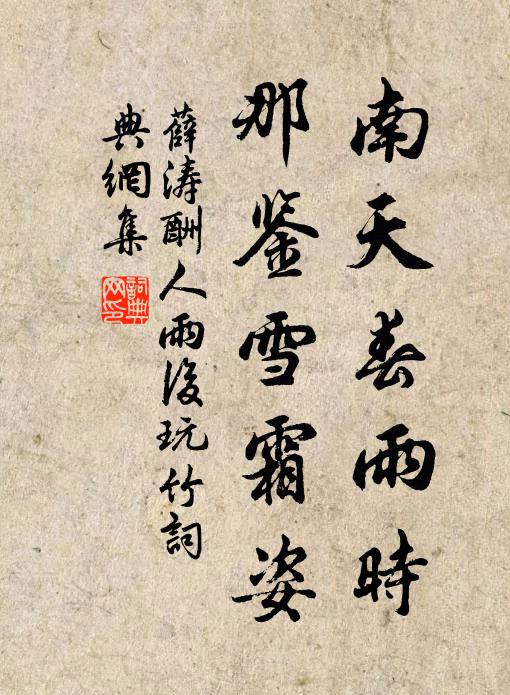 南天春雨時
那鉴雪霜姿
薛涛酬人雨後玩竹詞
典網集
詞典
网印